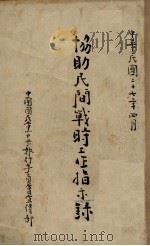 中華民國二十七年四月
協助民間戰時工作指示錄
中國國民黨中央執行委員會宣傳部